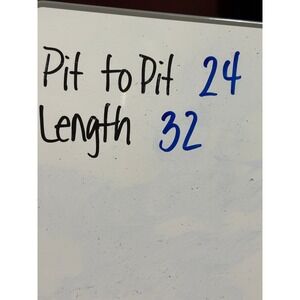 Pit to Pit 24
Length 32